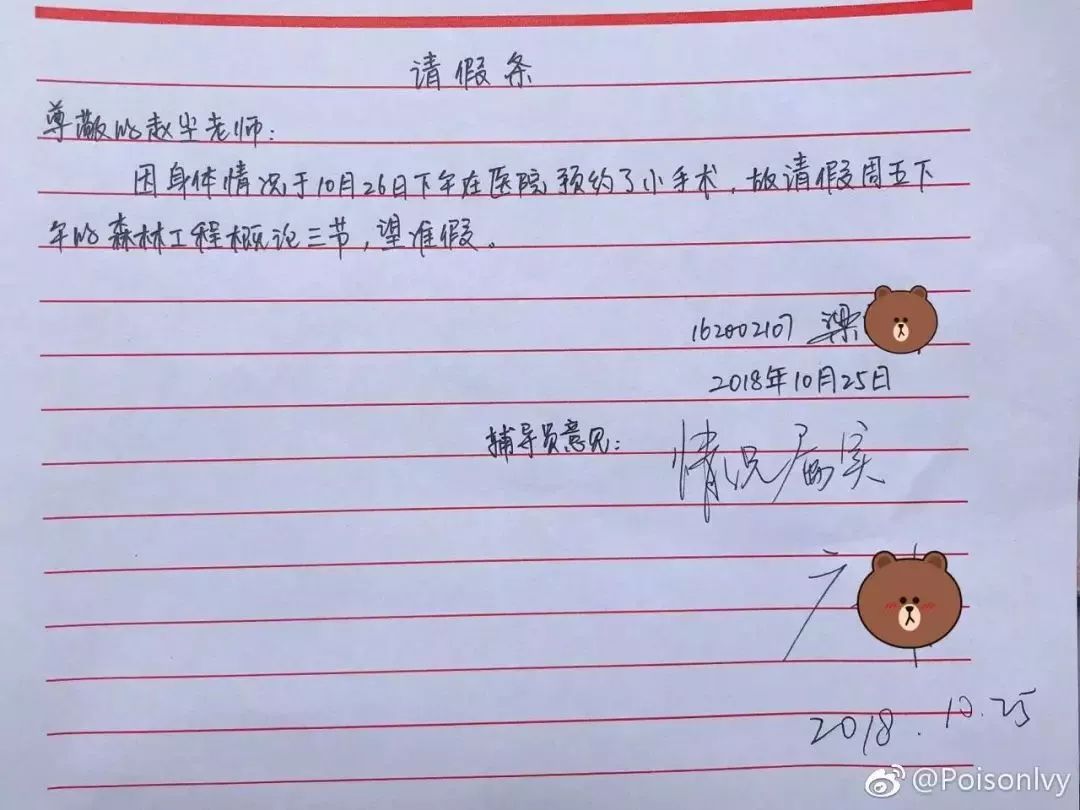 请假条
尊敬的赵尘老师:
因身体情况于10月26日下午在医院预约了小手术,故请假周五下
午的森林工程概论三节,望准假。
162002107 梁
2018年10月25日
辅导员意见:
情况属实
2018.10.25
@PoisonIvy